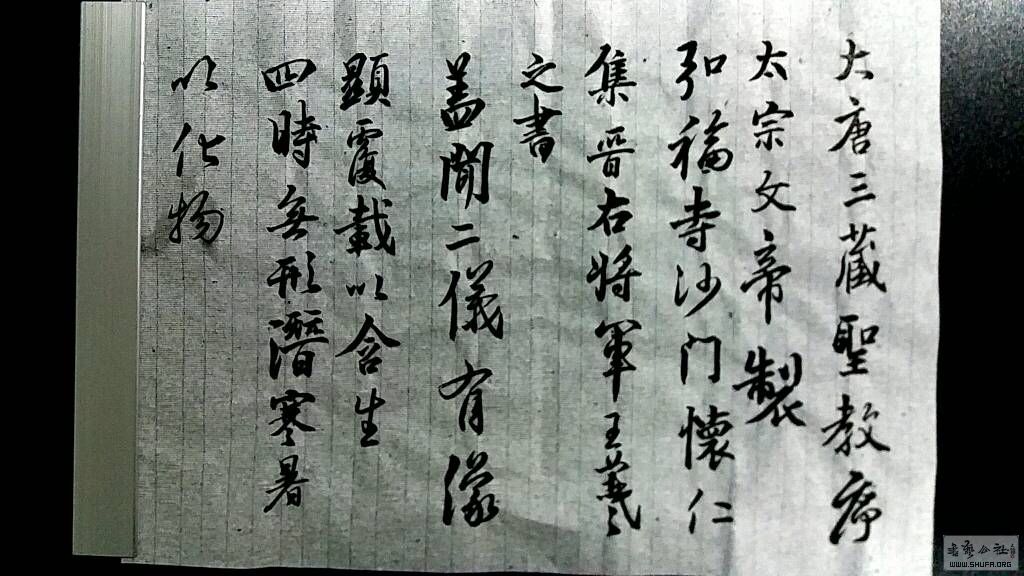 大唐三藏聖教序
太宗文帝製
弘福寺沙门懷仁
集晉右將軍王羲
之書
蓋聞二儀有像
顯覆載以含生
四時無形潛寒暑
以化物
書藝公社
WWW.SHUFA.ORG